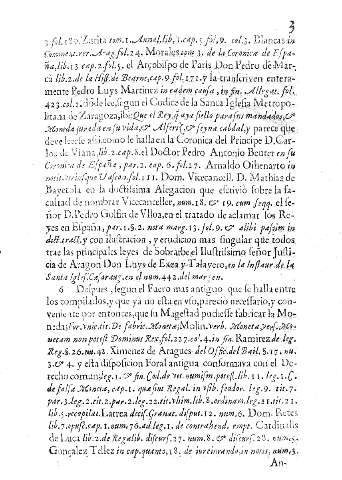 3
3. fol. 180. Zurita tom. 1. Annal. lib. 1. cap. 5. fol. 9. col. 3. Blancas in
Comment. rer. Arag. fol. 24. Morales tom. 3. de la Coronica de Espa-
ña, lib. 13 cap. 2. fol. 5. el Arçobispo de Paris Don Pedro de Mar-
ca lib. 2. de la Hist. de Bearne, cap. 9. fol. 171. y la transcriven entera-
mente Pedro Luys Martinez in eadem causa, in fin. Allegat. fol.
423. col. 1. dõde lee, segun el Codice de la Santa Iglesia Metropo-
litana de Zaragoza, ibi: Que el Rey, q̃ aya sello para sus mandados, &
Moneda jurada en su vida, & Alferiz, & seyna cabdal, y parece que
deve leerse assi como le halla en la Coronica del Principe D. Car-
los de Viana, lib. 2. cap. 6. el Doctor Pedro Antonio Beuter en su
Coronica de España, par. 2. cap. 6. fol. 27. Arnaldo Oihenarto in
notit. utriusque Vascon. fol. 111. Dom. Vicecancell. D. Mathias de
Bayetola en la doctissima Alegacion que escrivió sobre la fa-
cultad de nombrar Vicecanceller, num. 18. & 19. cum seqq. el se-
ñor D. Pedro Golfin de Vlloa, en el tratado de aclamar los Re-
yes en España, par. 1. §. 2. nota marg. 13. fol. 9. & alibi passim in
dict. tract. y con ilustracion, y erudicion mas singular que todos
trae las principales leyes de Sobrarbe el Ilustrissimo señor Justi-
cia de Aragon Don Luys de Exea y Talayero, en la Instaur. de la
Santa Igles. Cesaraug. en el num. 442. del margen.
6 Despues, segun el Fuero mas antiguo que se halla entre
los compilados, y que ya no està en vso, parecio necessario, y con-
veniente por entonces, que la Magestad pudiesse fabricar la Mo-
neda: for. vnic. tit. De fabric. Monetæ; Molin. verb. Moneta, vers. Mo-
netam non potest Dominus Rex, fol. 227. col. 4. in fin. Ramirez de leg.
Reg. §. 26. nu. 42. Ximenez de Aragues del Offic. del Bail. §. 17. nu.
3. & 4. y esta disposicion Foral antigua conformava con el De-
recho comun, leg. 1. & fin. Cod. de vet. numism. potest. lib. 11. leg. 1. C.
de falsa Moneta, cap. 1. quæ sint Regal. in vsib. feudor. leg. 9. tit. 7.
par. 3. leg. 2. tit. 2. par. 2. leg. 22. tit. vltim. lib. 8. ordinam. leg. 21. tit. 21.
lib. 5. recopilat. Larrea decis. Granat. disput. 12. num. 6. Dom. Retes
lib. 7. opusc. cap. 1. num. 76. ad leg. 1. de contrahend. empt. Cardinalis
de Luca lib. 2. de Regalib. discurs. 27. num. 8. & discurs. 28. num. 5.
Gonçalez Tellez in cap. quanto, 18. de iureiurando, in notis, num. 3.
An-